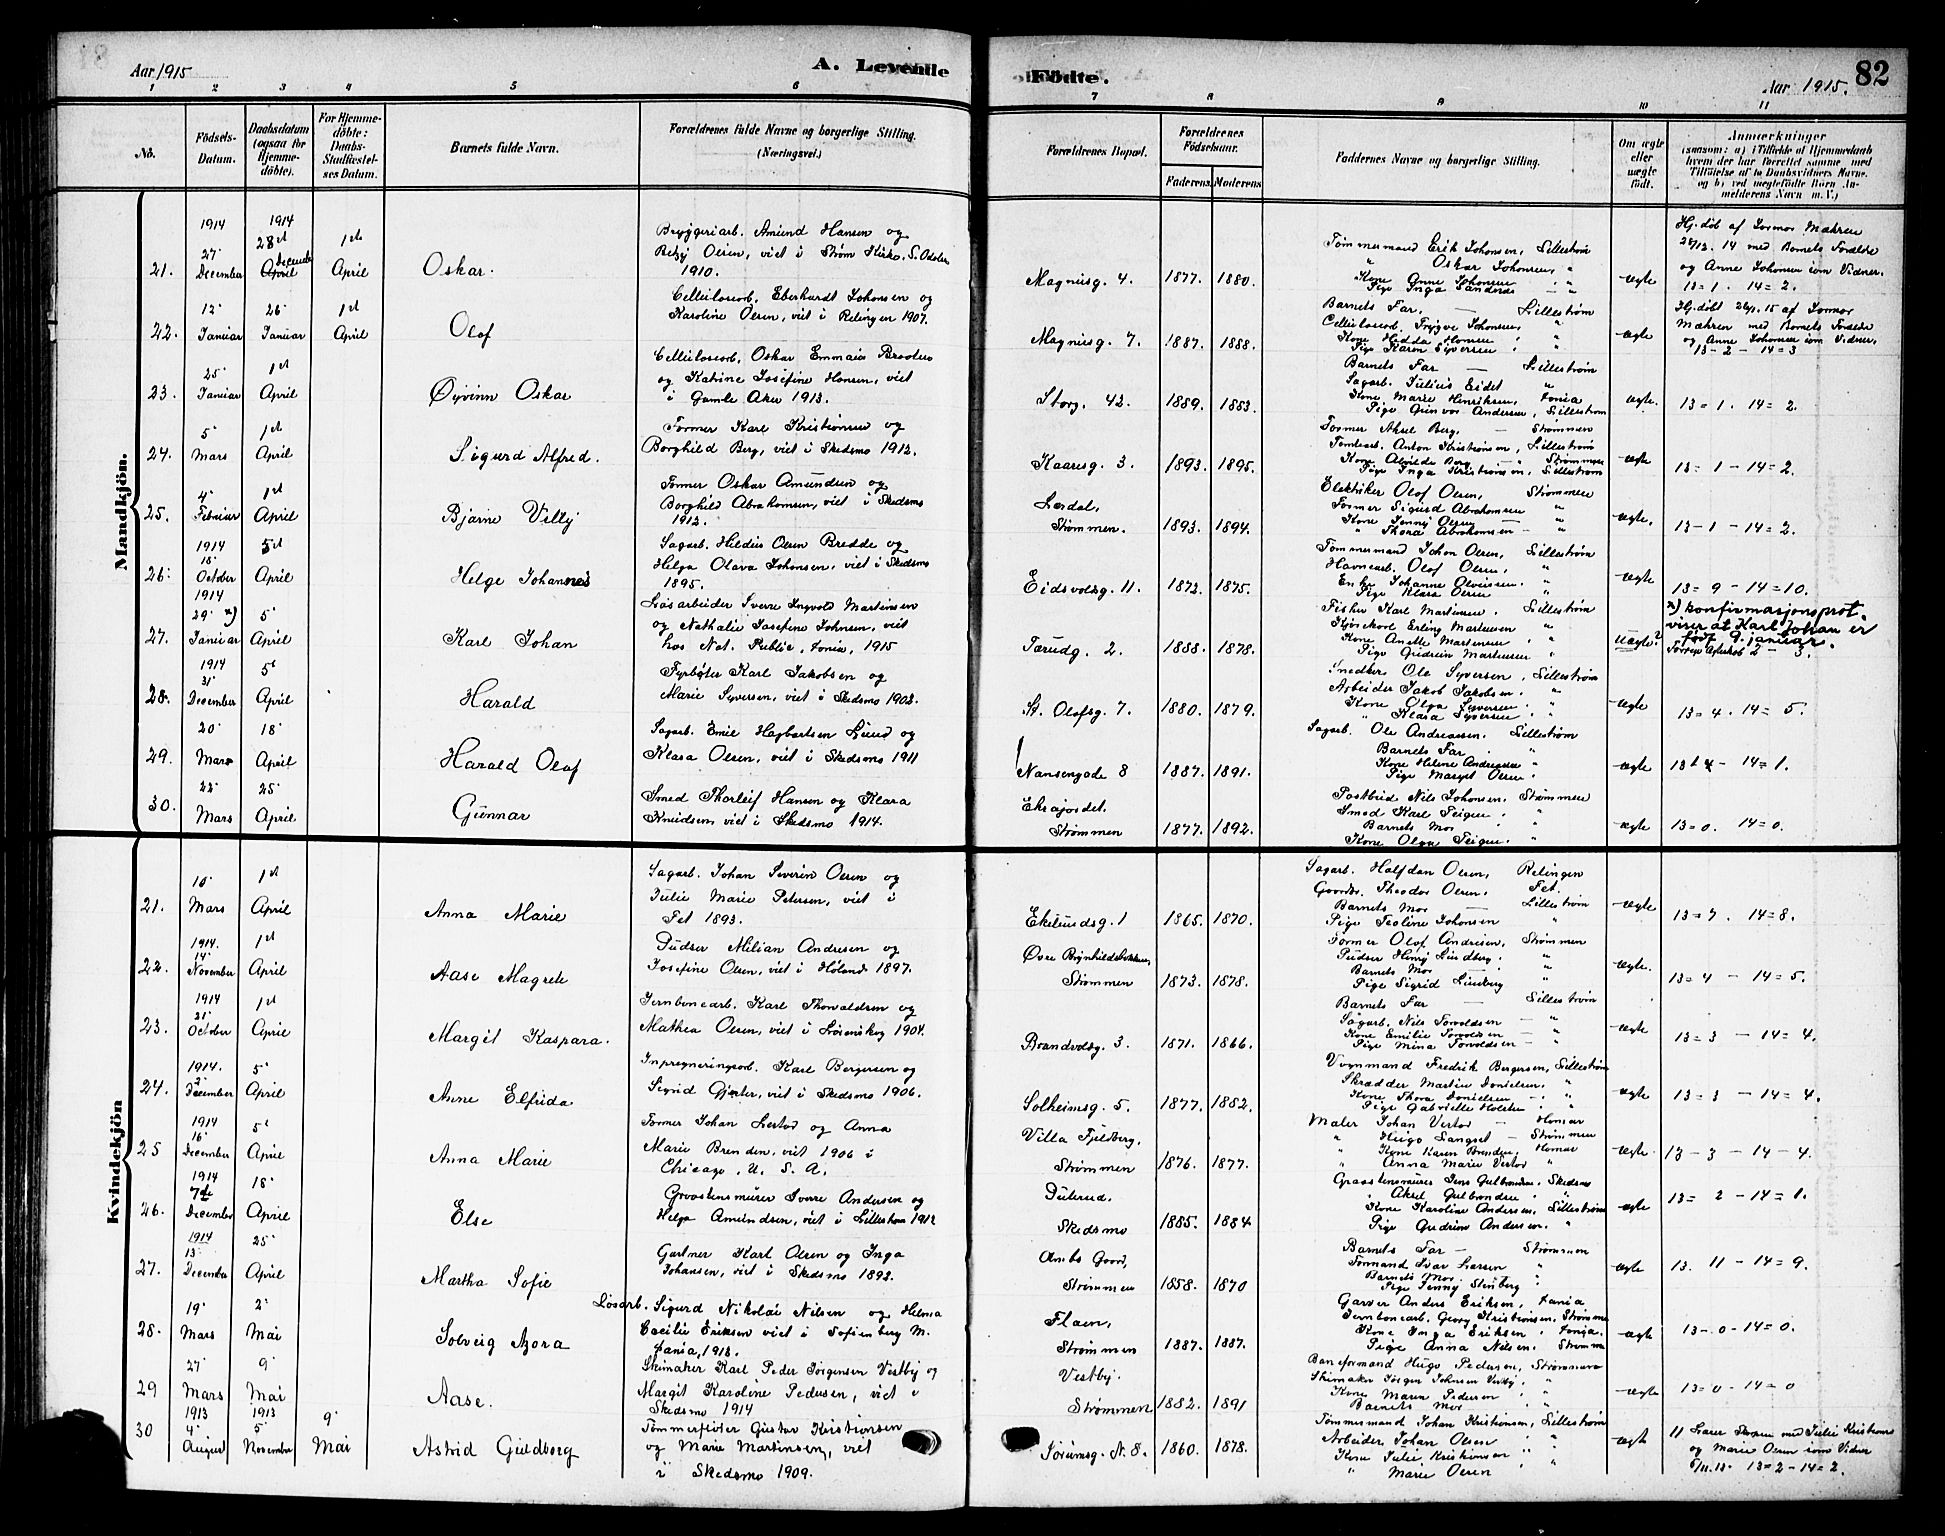 Aar 1915
A. Levende
1 2 3 4 5 6
No.
Födsels-Datum.
Daabsdatum (ogsaa for Hjemmedöbte).
For Hjemmedöbte: Daabs-Stadfæstelses Datum.
Barnets fulde Navn.
Forældrenes fulde Navne og borgerlige Stilling. (Næringsvei.)
Mandkjön.
21. 1914 27 December 1914 28de December April 1ste April Oskar.
Bryggeriarb. Amund Hansen og
Betzy Olsen, viet i Strøm Kirke, S. Odalen
1910.
22. 12 Januar 26 Januar 1ste April Olof
Cellulosearb. Eberhardt Johansen og
Karoline Olsen, viet i Rælingen 1907.
23. 25 Januar 1st April Øyvinn Oskar
Cellulosearb. Oskar
og Katrine Josefine Hansen, viet
i Gamle Aker 1913.
24. 5 Mars 1st April Sigurd Alfred.
Former Karl Kristiansen og
Borghild Berg, viet i Skedsmo 1912.
25. 4 Februar 1st April Bjarne Villy
Former Oskar Amundsen og
Borghild Abrahamsen, viet i Skedsmo
1912.
26. 1914 18 October 5te April Helge Johannes
Sagarb. Hildus Olsen Bredde og
Helga Olava Johansen, viet i Skedsmo
1895.
27. 1914 29 x) Januar 5 April Karl Johan
Løsarbeider Sverre Ingvold Martinsen
og Nathalie Josefine Johnsen, viet
hos Not. Public, Fonia, 1915
28. 1914 31 December 5 April Harald
Fyrbøter Karl Jakobsen og
Marie Syversen, viet i Skedsmo 1903.
29. 20 Mars 18 April Harald Olaf
Sagarb. Emil Hagbartsen Lund og
Klara Olsen, viet i Skedsmo 1911
30. 22 Mars 25 April Gunnar
Smed Thorleif Hansen og Klara
Knudsen, viet i Skedsmo 1914.
Kvindekjön
21. 10 Mars 1st April Anna Marie
Sagarb. Johan Severin Olsen og
Julie Marie Petersen, viet i
Fet 1893.
22. 1914. 14 November 1st April Aase Magrete
Pudser Milian Andresen og
Josefine Olsen, viet i Høland 1897.
23. 1914 21 October 1st April Margit Kaspara.
Jernbanearb. Karl Thorvaldsen og
Mathea Olsen, viet i Lørenskog 1904.
24. 1914. 2 December 5 April Anne Elfrida
Inpregneringsarb. Karl Bergersen og
Sigrid Gjester, viet i Skedsmo 1906.
25 1914 16 December 5 April Anna Marie
Former Johan Vestad og Anna
Marie Brenden, viet 1906 i
Chicago, U. S. A.
26. 1914 7de December 18 April Else
Graastensmurer Sverre Andersen og
Helga Amundsen, viet i Lillestrøm 1912
27. 1914 13 December 25 April Martha Sofie
Gartner Karl Olsen og Inga
Johansen, viet i Skedsmo 1892.
28. 19 Mars 2 Mai Solveig Azora
Løsarb. Sigurd Nikolai Nilsen og Helma
Cecilie Eriksen viet i Sofienberg M.
1913.
29 27 Mars 9 Mai Aase.
Skimaker Karl Peder Jørgensen Vestby og
Margit Karoline Pedersen, viet i
Skedsmo 1914
30 1913 4 August 1913 5 November 9 Mai Astrid Guldborg
Tømmerfløter Gustav Kristiansen
og Marie Martinsen, viet
i Skedsmo 1909.
Födte.
Aar 1915. 82
7 8 9 10 11
Forældrenes Bopæl.
Forældrenes Födselsaar.
Faderens. Moderens
Faddernes Navne og borgerlige Stilling.
Om ægte eller uægte födt.
Anmærkninger
(saasom: a) i Tilfælde af Hjemmedaab
hvem der har forrettet samme, med
Tilföielse af to Daabsvidners Navne.
og b) ved uægtefödte Börn Anmelderens Navn m. V.)
Magnusg. 4. 1877. 1880.
Tømmermand Erik Johansen, Lillestrøm
" Oskar Johansen, "
Kone Anne Johansen "
Pige Inga "
ægte
Hj.døb af Jormor Mæhren
28/12. 14 med Barnets Forældre
og Anne Johansen som Vidner.
13=1. 14=2.
Magnusg. 7. 1887. 1888.
Barnets Far. — Lillestrøm
Cellulosearb. Trygve Johansen, "
Kone Hedda Hansen, "
Pige Karen Syversen "
ægte
Hj.døbt 26/1. 15 af Jormor
Mæhren med Barnets Forældre
og Anne Johansen som Vidner.
13-2-14=3
Storg. 42. 1889. 1883.
Barnets Far — Lillestrøm
Sagarb. Julius Eidet "
Kone Marie Henriksen, Fonia
Pige Gunvor Andersen, Lillestrøm
ægte.
13=1. 14=2.
Kaaresg. 3. 1893. 1895.
Former Aksel Berg, — Strømmen
Anton Kristiansen, Lillestrøm
Kone Alvilde Berg — Strømmen
Pige Inga Kristiansen, Lillestrøm
ægte
13=1-14=2.
Strømmen. 1893. 1894.
Elektriker Olof Olsen, Strømmen
Former Sigurd Abrahamsen "
Kone Jenny Olsen — "
" Thora Abrahamsen — "
ægte.
13-1-14=2.
Eidsvoldsg. 11. 1872. 1875.
Tømmermand Johan Olsen, Lillestrøm
Havnearb. Olof Olsen, "
Enke Johanne "
Pige Klara Olsen "
ægte
13=9-14=10.
Torudg. 2. 1888. 1878.
Fisker Karl Martinsen. Lillestrøm
Erling Martinsen "
Kone Anette Martinsen "
Pige Gudrun Martinsen "
uægte?
x) konfirmasjonsprot.
viser at Karl Johan er
født 9. januar.
St. Olofsg. 7. 1880. 1879.
Snedker Ole Syversen, Lillestrøm
Arbeider Jakob Jakobsen. "
Kone Olga Syversen. "
" Klara Syversen "
ægte
13=4. 14=5.
Nansengade 8 1887. 1891.
Sagarb. Ole Andreassen. Lillestrøm
Barnets Far. "
Kone Helene Andreassen "
Pige Margit Olsen. "
ægte
14=1.
Ekrajordet. Strømmen 1877. 1892.
Postbud Nils Johansen. Strømmen
Smed Karl Teigen. "
Barnets Mor "
Kone Olga Teigen. "
ægte
13=0. 14=0.
Ekelundsg. 1 1865. 1870.
Sagarb. Halfdan Olsen, Rælingen
Gaardbr. Theodor Olsen. Fet.
Barnets Mor — Lillestrøm
Pige Teoline Johansen "
ægte
13=7. 14=8.
Øvre Brynhildsbakken, Strømmen 1873. 1878.
Former Olof Andresen, Strømmen
Pudser Henry Lindberg. "
Barnets Mor — "
Pige Sigrid Lindberg "
ægte.
13=4-14=5.
Brandvoldg. 3. 1871. 1866.
Barnets Far — Lillestrøm
Sagarb. Nils Torvoldsen — "
Kone Emilie Torvoldsen — "
Pige Mina Torvoldsen — "
ægte
13=3-14=4.
Solheimsg. 5. 1877. 1882.
Vognmand Fredrik Bergersen, Lillestrøm
Skrædder Martin Danielsen. "
Kone Thora Danielsen — "
Pige Gabrielle Holster "
ægte
13=3-14=4.
Villa Fjeldberg, Strømmen 1876. 1877.
Maler Johan Vestad — Hamar
" Hugo Langset — Strømmen
" Kone Karen Brenden, Hamar
" Anna Marie Vestad "
ægte.
13-3-14-4.
Skedsmo 1885. 1884
Graastensmurer Jens Gulbrandsen. Skedsmo
" Aksel Gulbrandsen "
Kone Karoline Andersen, Lillestrøm
Pige Gudrun Andersen. "
ægte
13=2-14=1.
Strømmen 1858. 1870
Barnets Far — Strømmen
Formand Ivar Larsen "
Barnets Mor "
Pige Jenny Stenberg "
ægte
13. 11-14=9.
Flaen, Strømmen 1887. 1887.
Garver Anders Eriksen,
Jernbanearb. Georg Kristiansen. Strømmen
Kone Inga Eriksen.
Pige Anna Nilsen. Strømmen
ægte
13-0-14=0.
Vestby. Strømmen 1882. 1891
Baneformand Hugo Pedersen, Strømmen
Skimaker Jørgen Johnsen Vestby. "
Kone Maren Pedersen "
Barnets Mor "
ægte
13=0-14=0
Sørumsg. N. 8. 1860. 1878.
Tømmermand Johan Kristiansen, Lillestrøm
Arbeider Johan Olsen "
Kone Julie Kristiansen "
" Marie Olsen "
ægte
med Julie Kristians
og Marie Olsen som Vidner
5/11.13. 13=2-14=2.